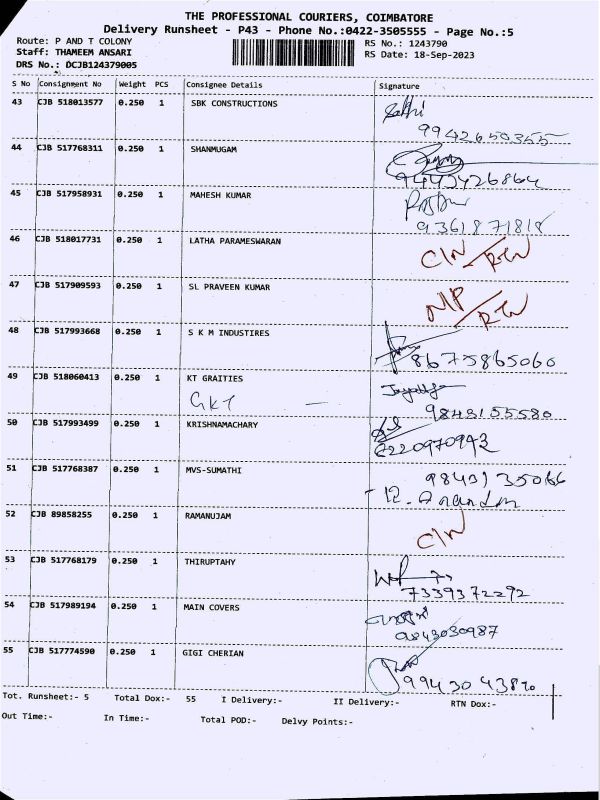 THE PROFESSIONAL COURIERS, COIMBATORE
Delivery Runsheet - P43 - Phone No.:0422-3505555 - Page No.:5
Route: P AND T COLONY RS No.: 1243790
Staff: THAMEEM ANSARI RS Date: 18-Sep-2023
DRS No.: DCJB124379005
S No Consignment No Weight PCS Consignee Details Signature
43 CJB 518013577 0.250 1 SBK CONSTRUCTIONS
9942650355
44 CJB 517768311 0.250 1 SHANMUGAM
9443426864
45 CJB 517958931 0.250 1 MAHESH KUMAR
9361871818
46 CJB 518017731 0.250 1 LATHA PARAMESWARAN C/N
47 CJB 517909593 0.250 1 SL PRAVEEN KUMAR
48 CJB 517993668 0.250 1 S K M INDUSTIRES
8675865060
49 CJB 518060413 0.250 1 KT GRAITIES
GKT
50 CJB 517993499 0.250 1 KRISHNAMACHARY
51 CJB 517768387 0.250 1 MVS-SUMATHI
52 CJB 89858255 0.250 1 RAMANUJAM C/N
53 CJB 517768179 0.250 1 THIRUPTAHY
7339372292
54 CJB 517989194 0.250 1 MAIN COVERS
9843030987
55 CJB 517774590 0.250 1 GIGI CHERIAN
Tot. Runsheet:- 5 Total Dox:- 55 I Delivery:- II Delivery:- RTN Dox:-
Out Time:- In Time:- Total POD:- Delvy Points:-